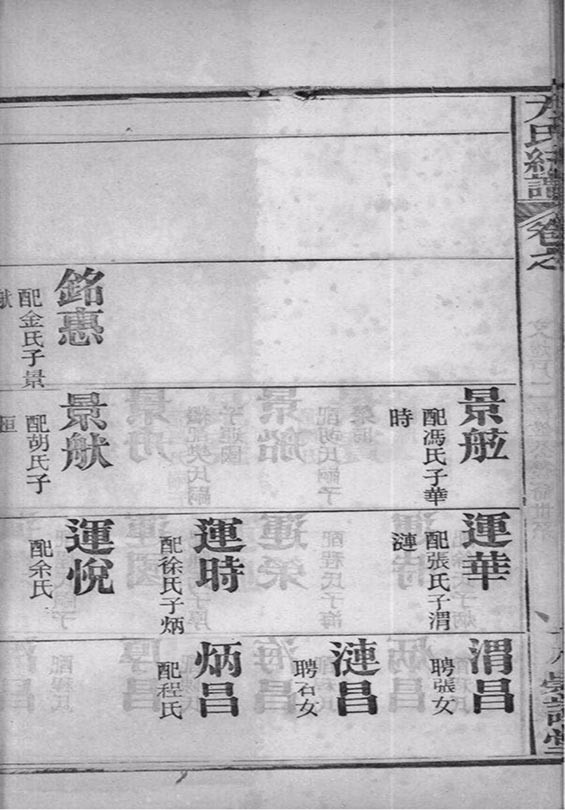 方氏統譜
卷之
銘惠
配金氏子景
猷
景舷
配馮氏子華
時
景猷
配胡氏子
運華
配張氏子渭
漣
運時
配徐氏子炳
運悅
配余氏
渭昌
聘張女
漣昌
聘石女
炳昌
配程氏